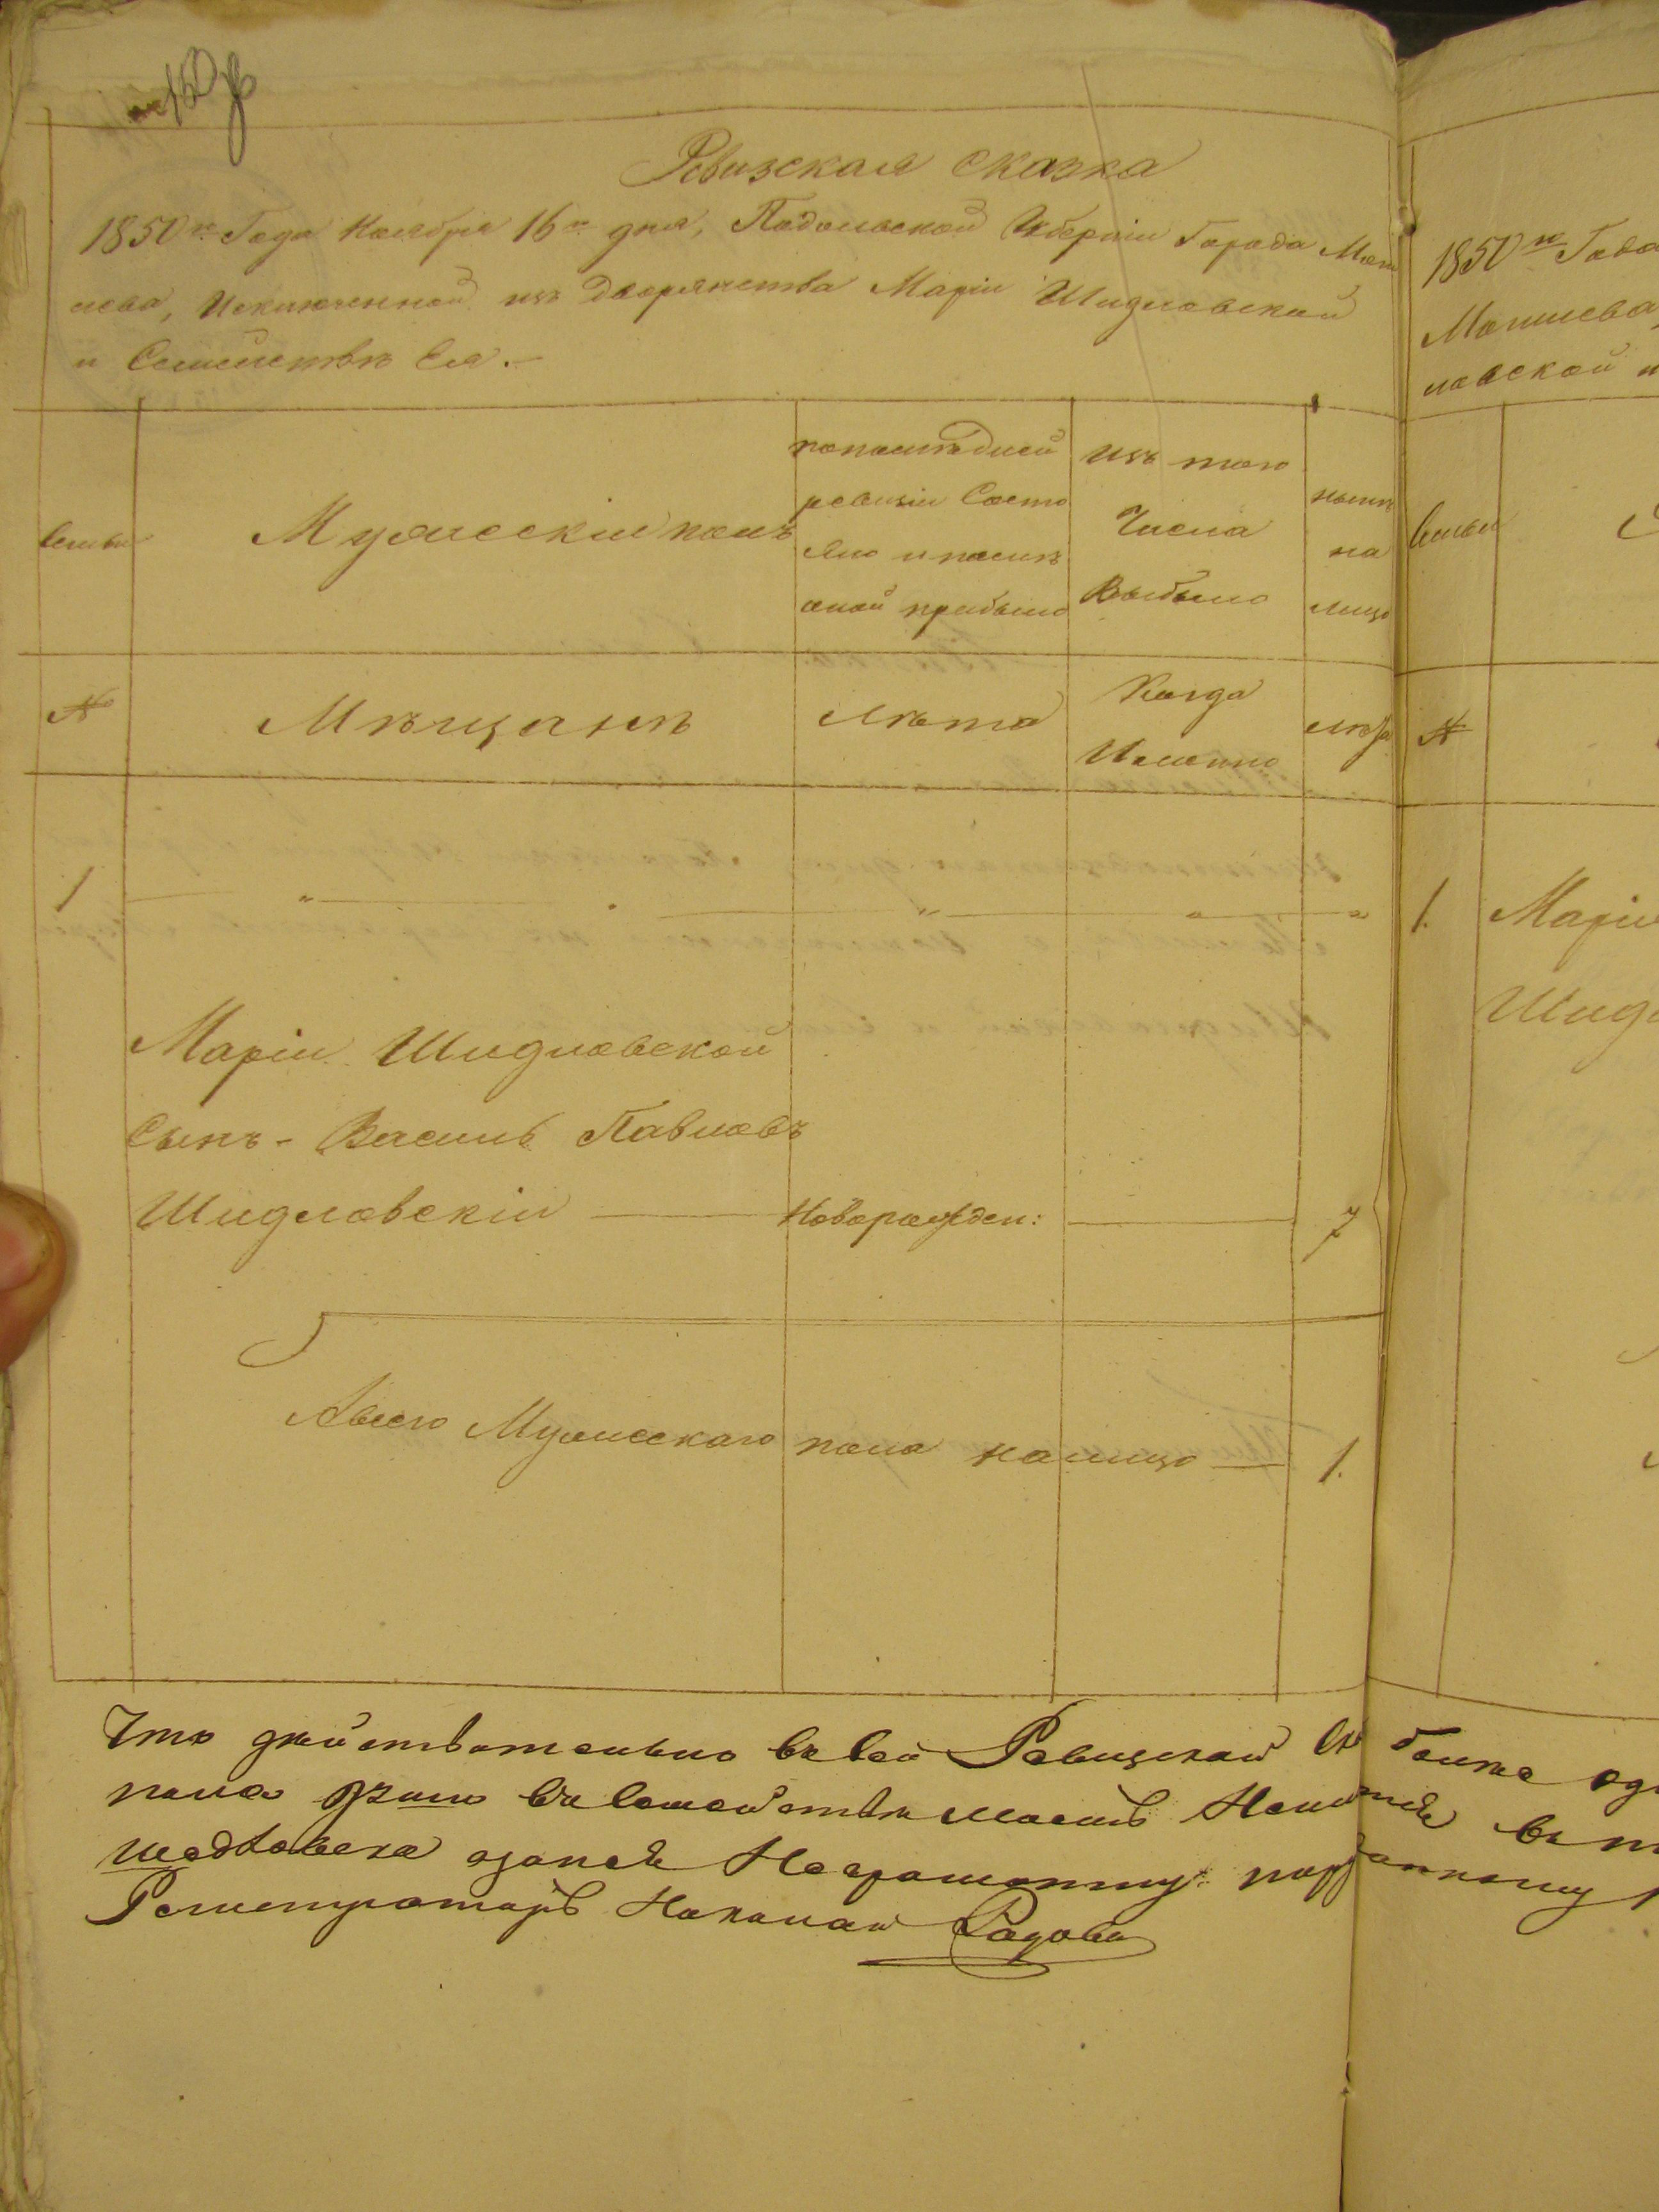 150
Ревизская сказка
1850го Года Ноября 16го дня, Подольской Губерніи Города Моги
лева, Исключенной изъ дворянства Маріи Шидловской
и Семействѣ Ея.-
Семьи
Мужескій полъ
по последней
ревизіи Состо
яло и после
оной прибыло
Изъ того
Числа
Выбыло
нынѣ
на
лицо
№
Мѣщанѣ
Лѣта
Когда
Именно
лѣта
1
Маріи Шидловской
Сынъ - Василь Павловъ
Шидловскій
Новорожден:
7
Авсего Мужескаго пола налицо 1.
Что действительно въ сей Ревизской
пола въ семействѣ моемъ
Неграмотну
Регистраторъ Николай
1850го Года
Могилева,
ловской и
Семьи
№
1. Марія
Шид